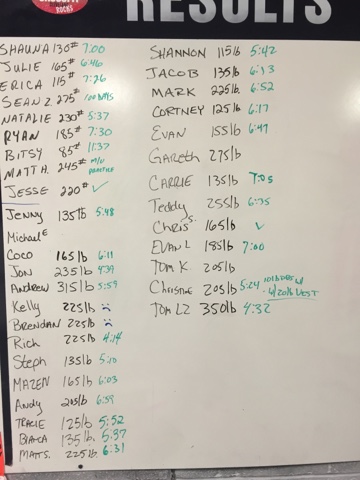 ROCKS
RESULTS
SHAUNA 130# 7:00
JULIE 165# 6:46
ERICA 115# 7:26
SEAN Z. 275#
NATALIE 230# 5:37
RYAN 185# 7:30
BITSY 85# 11:37
MATT H. 245# M/U PRACTICE
JESSE 220# ✓
Jenny 135lb 5:48
Michael E
Coco 165lb 6:11
Jon 235lb 4:39
Andrew 315lb 5:59
Kelly 225lb ☹
BRENDAN 225lb ☹
Rich 225lb 4:14
Steph 135lb 5:10
MAZEN 165lb 6:03
Andy 205lb 6:59
TRACIE 125lb 5:52
BIANCA 135lb. 5:37
MATT S. 225lb 6:31
SHANNON 115lb 5:42
JACOB 135lb 6:13
MARK 225lb 6:52
CORTNEY 125lb 6:17
EVAN 155lb 6:47
GARETH 275lb
CARRIE 135lb 7:05
Teddy 255lb 6:35
Chris S. 165lb ✓
EVAN L 185lb 7:00
TOM K. 205lb
Christine 205lb 5:24 w/20lb VEST
TOM LZ 350lb 4:32